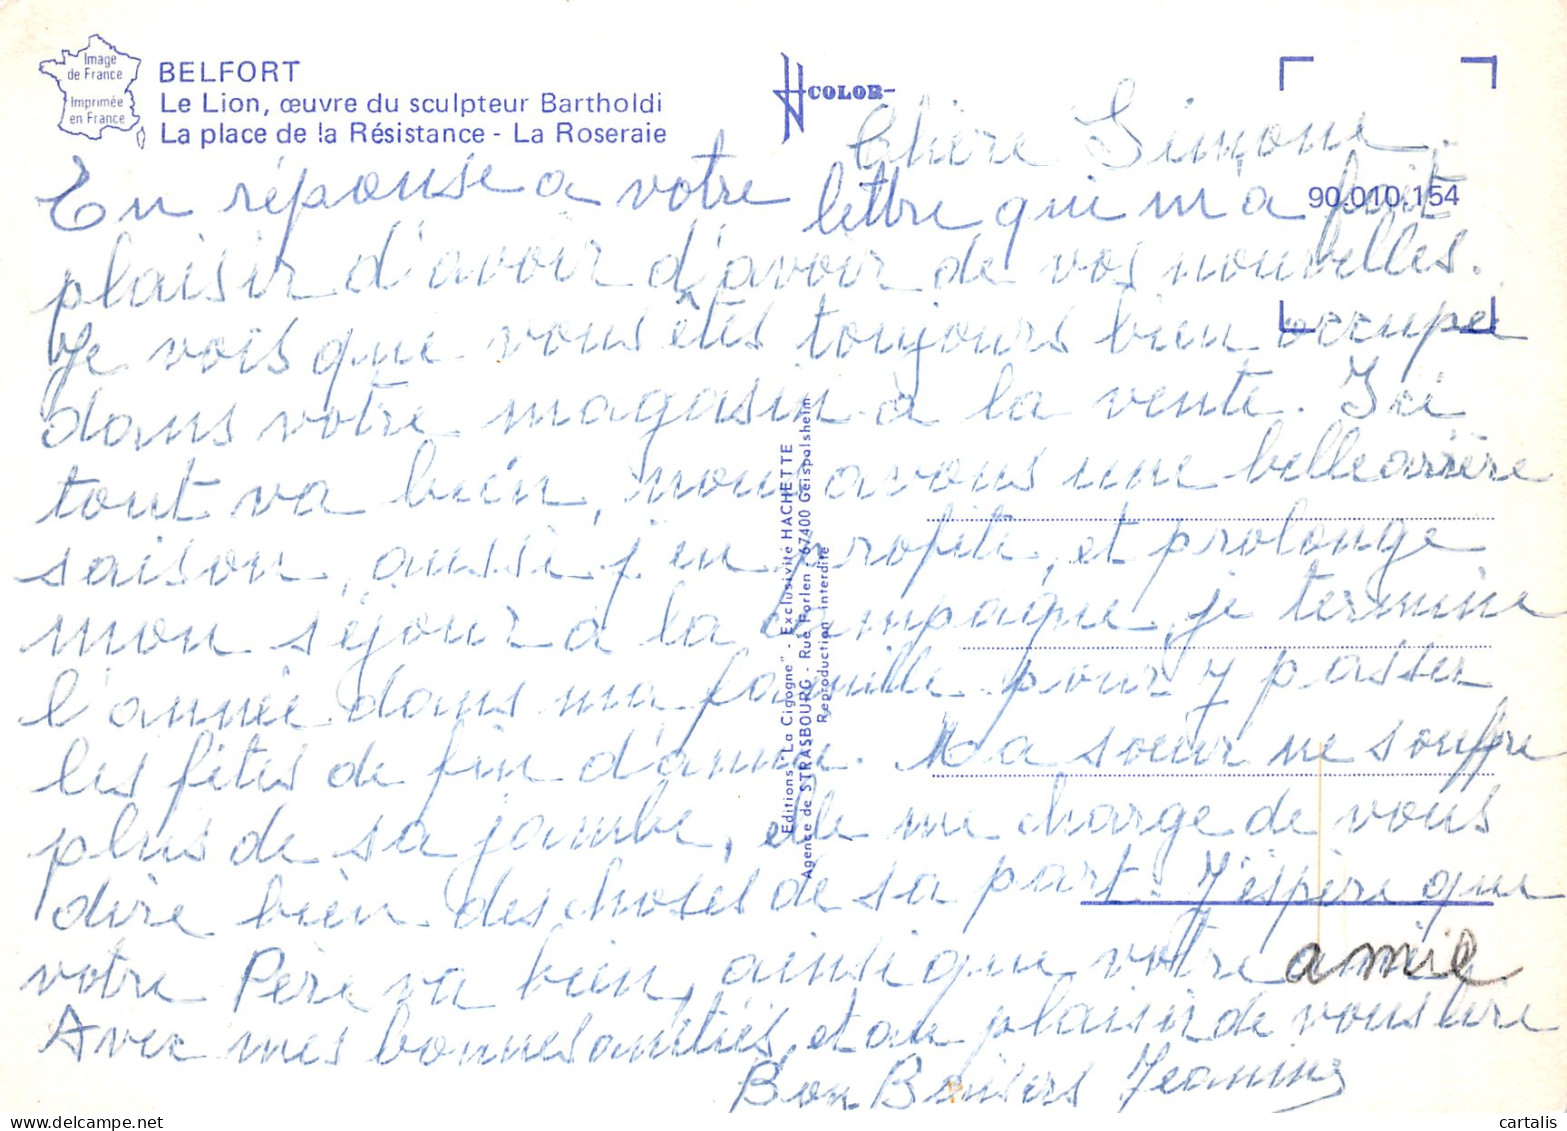 Image
de France
Imprimée
en France
BELFORT
Le Lion, œuvre du sculpteur Bartholdi
La place de la Résistance - La Roseraie
COLOR
90.010.154
Chère Simone.
En réponse a votre lettre qui m a fait
plaisir d'avoir d'avoir de vos nouvelles.
Je vois que vous êtes toujours bien occupée
dans votre magasin a la vente. Ici
tout va bien, nous avons une belle arrière
saison, aussi j'en profite, et prolonge
mon séjour a la campagne, je termine
l'année dans ma famille pour y passer
les fêtes de fin d'année. Ma soeur ne souffre
plus de sa jambe, elle me charge de vous
dire bien des choses de sa part. J'espère que
votre Père va bien, ainsi que votre amie
Avec mes bonnes amitiés, et au plaisir de vous lire
Bon Baisers Jeannine
Editions "La Cigogne" - Exclusivité HACHETTE
Agence de STRASBOURG - Rue Forlen - 67400 Geispolsheim
Reproduction interdite
cartalis
www.delcampe.net